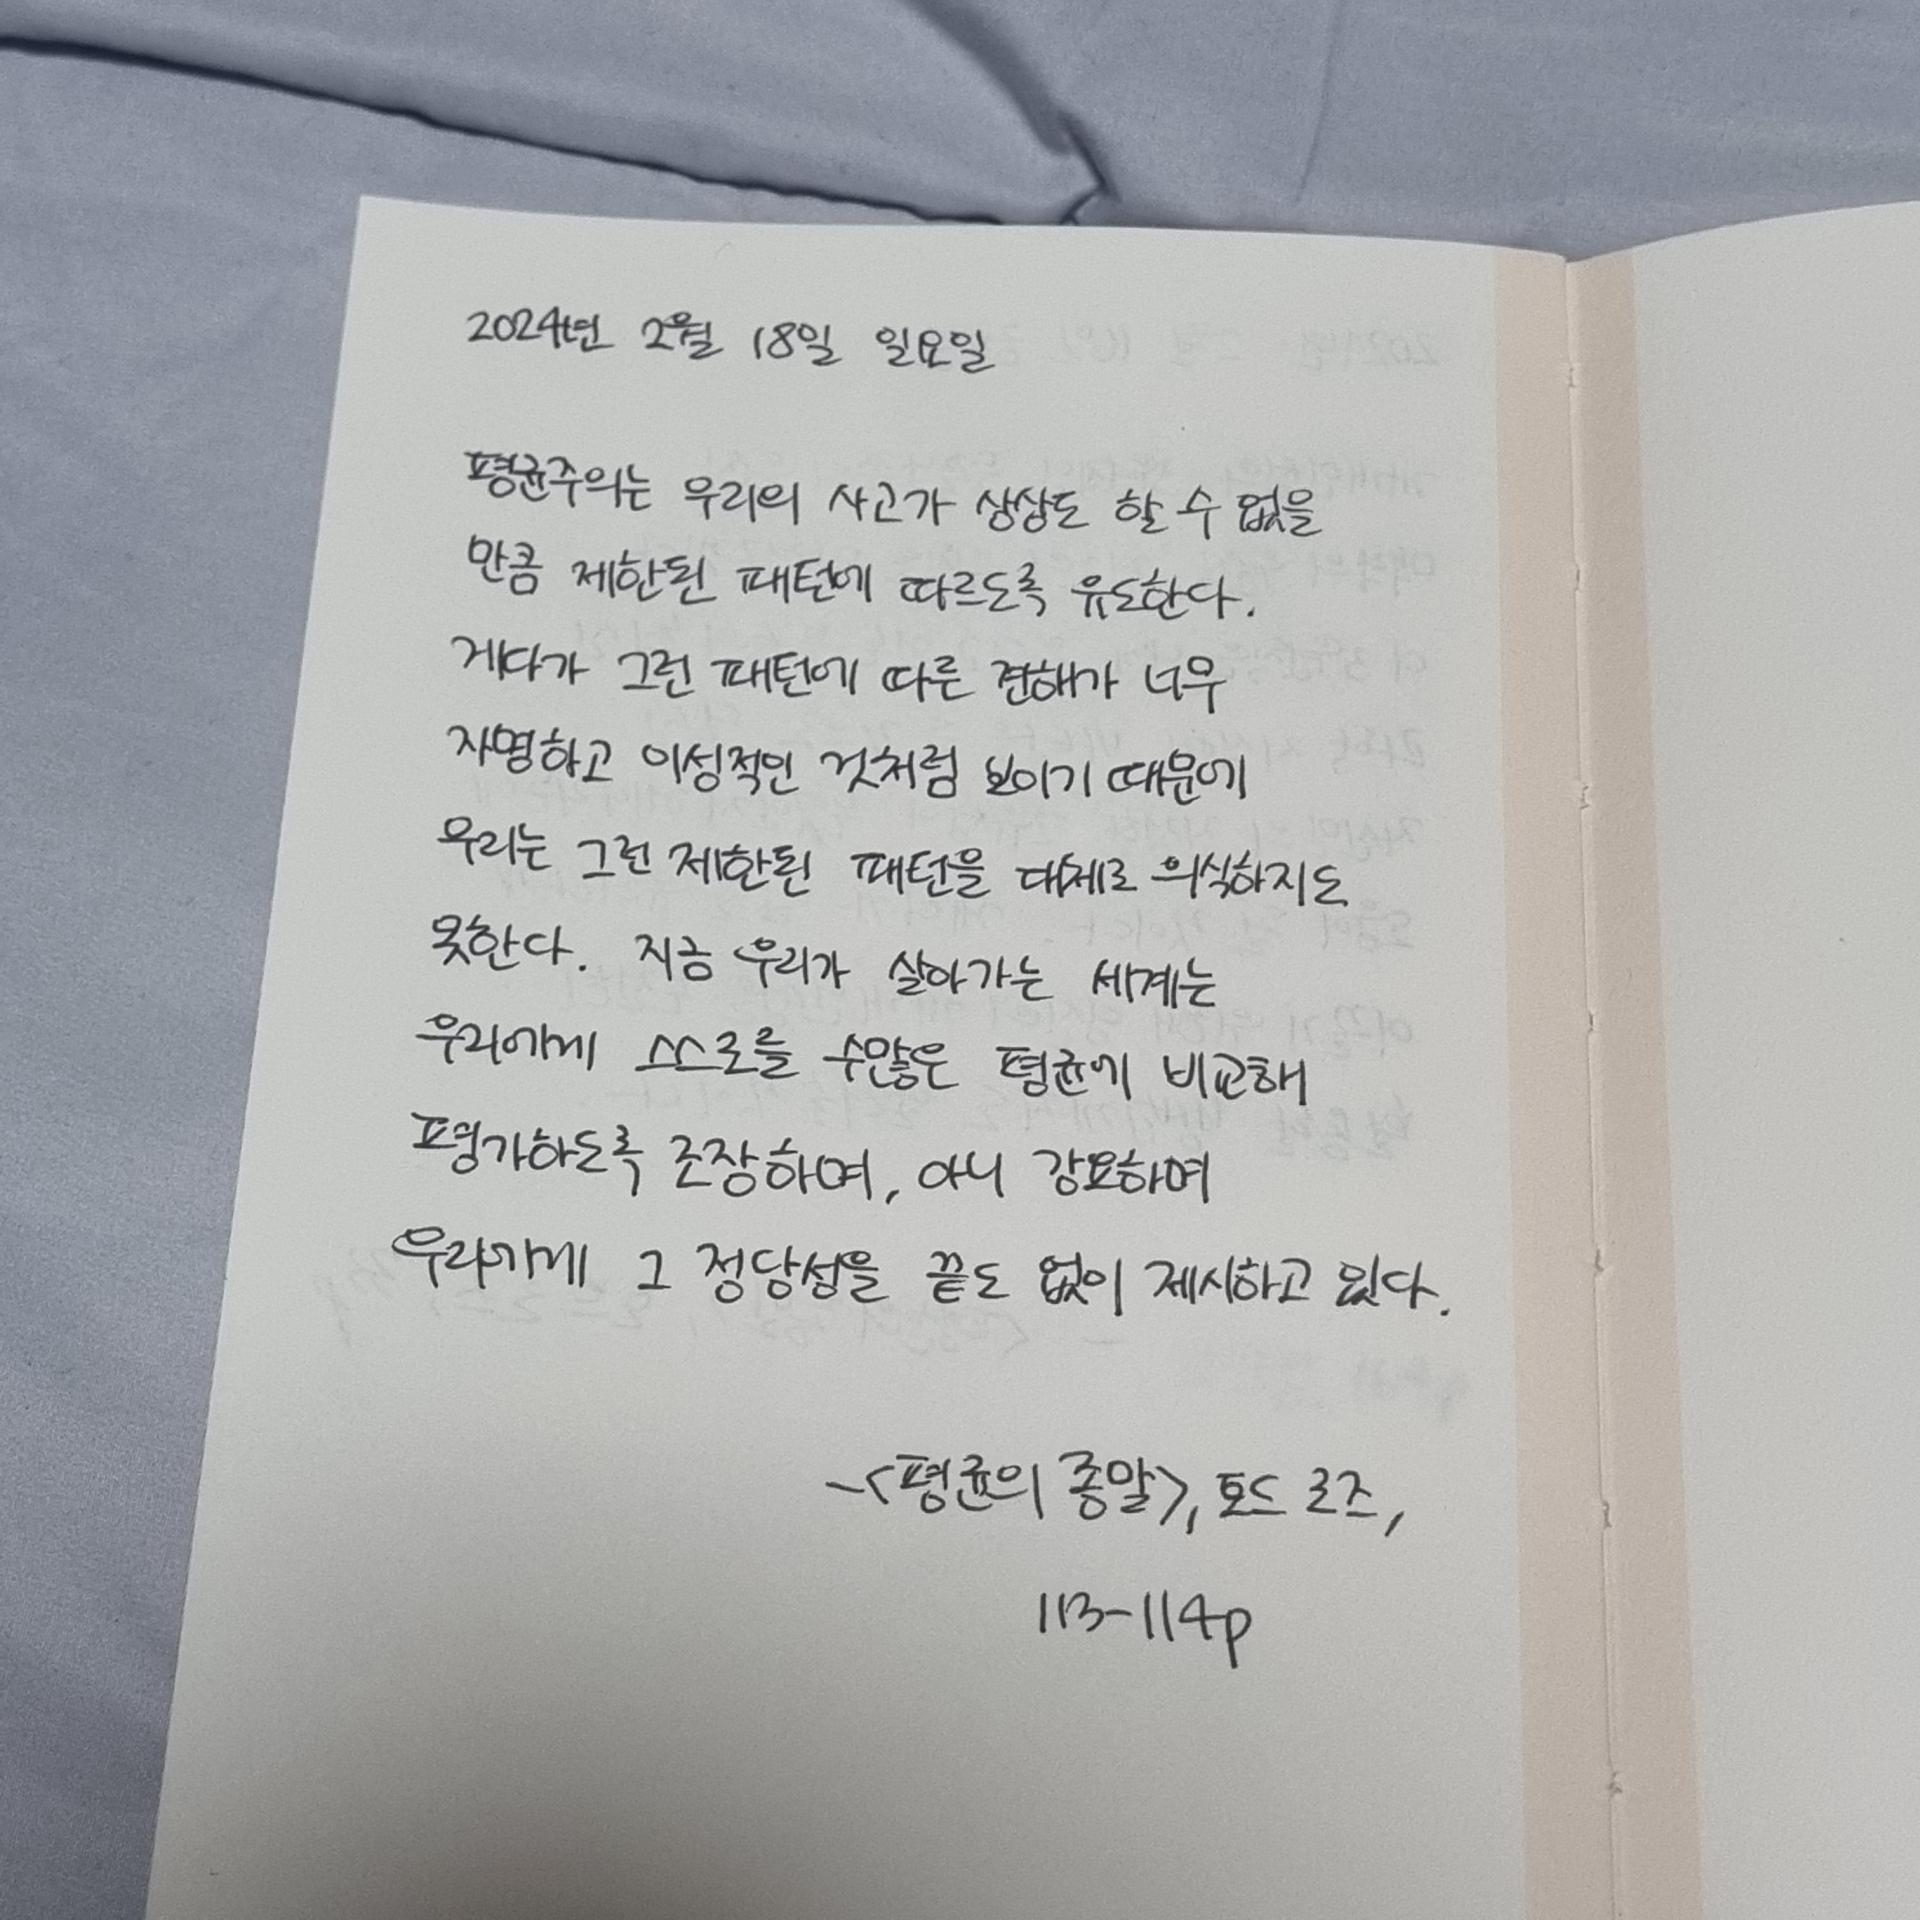 2024년 2월 18일 일요일
평균주의는 우리의 사고가 상상도 할 수 없을
만큼 제한된 패턴에 따르도록 유도한다.
게다가 그런 패턴에 따른 견해가 너무
자명하고 이성적인 것처럼 보이기 때문에
우리는 그런 제한된 패턴을 대체로 의식하지도
못한다. 지금 우리가 살아가는 세계는
우리에게 스스로를 수많은 평균에 비교해
평가하도록 조장하며, 아니 강요하며
우리에게 그 정당성을 끝도 없이 제시하고 있다.
-<평균의 종말>, 토드 로즈,
113-114p